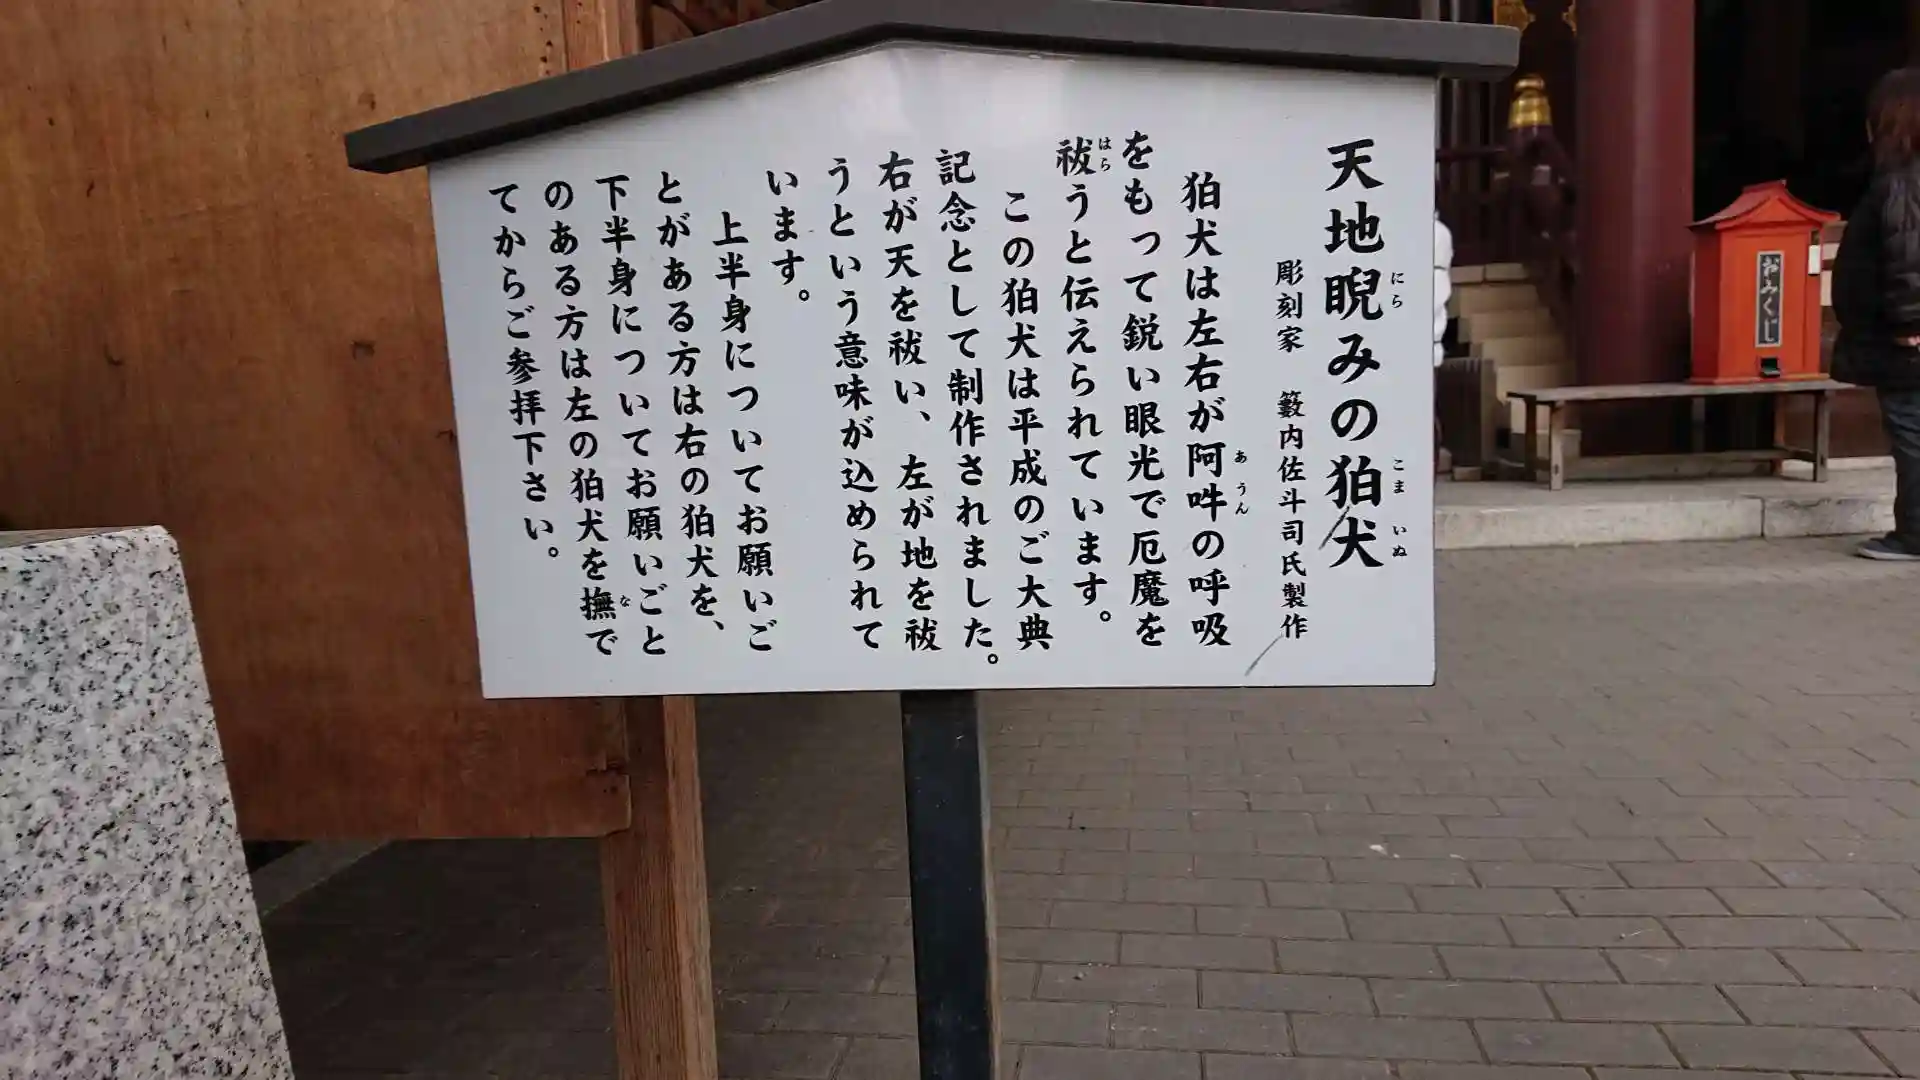 天地睨みの狛犬
にら
こま いぬ
彫刻家 籔内佐斗司氏製作
狛犬は左右が阿吽の呼吸
あうん
をもって鋭い眼光で厄魔を
祓うと伝えられています。
はら
この狛犬は平成のご大典
記念として制作されました。
右が天を祓い、左が地を祓
うという意味が込められて
います。
上半身についてお願いご
とがある方は右の狛犬を、
下半身についてお願いごと
のある方は左の狛犬を撫で
な
てからご参拝下さい。
おみくじ